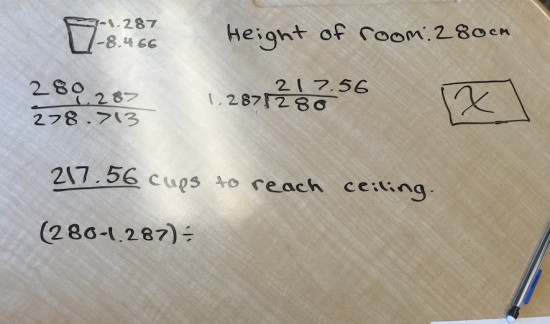 -1.287
-8.466
Height of room: 280cm
280
1.287
278.713
217.56
1.287 280
x
217.56 cups to reach ceiling.
(280-1.287)÷